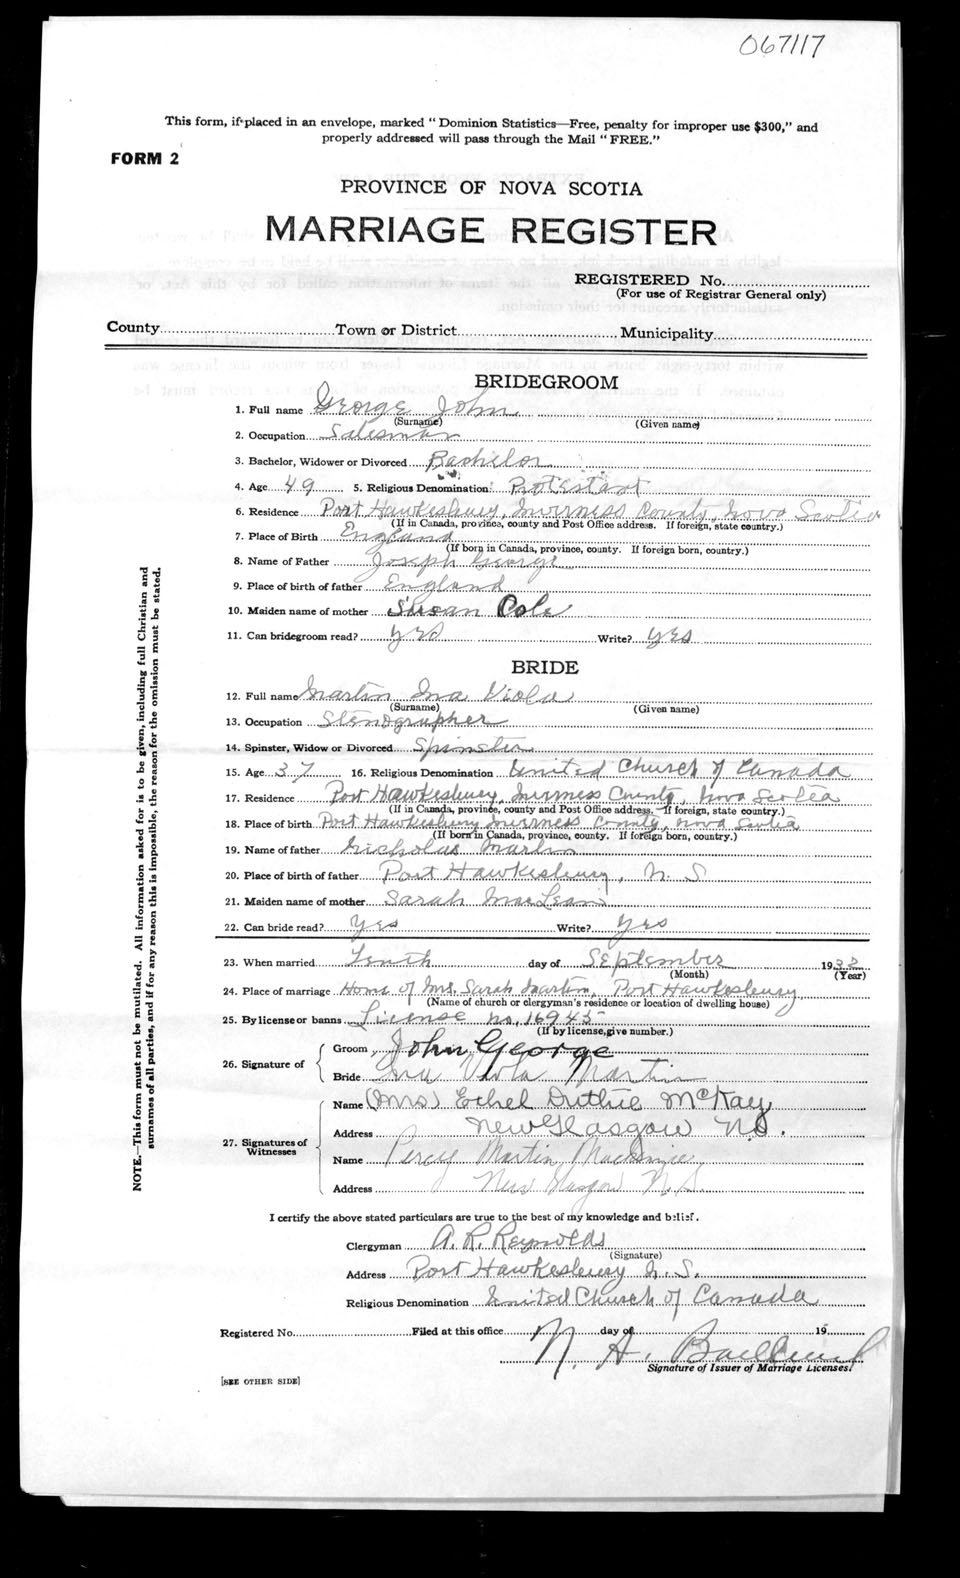 067117
This form, if placed in an envelope, marked " Dominion Statistics—Free, penalty for improper use $300," and
properly addressed will pass through the Mail " FREE."
FORM 2
PROVINCE OF NOVA SCOTIA
MARRIAGE REGISTER
REGISTERED No.
(For use of Registrar General only)
County Town or District Municipality
BRIDEGROOM
1. Full name George John
(Surname) (Given name)
2. Occupation Salesman
3. Bachelor, Widower or Divorced Bachelor
4. Age 49 5. Religious Denomination: Protestant
6. Residence Port Hawkesbury, Inverness County, Nova Scotia
(If in Canada, province, county and Post Office address. If foreign, state country.)
7. Place of Birth England
(If born in Canada, province, county. If foreign born, country.)
8. Name of Father Joseph George
9. Place of birth of father England
10. Maiden name of mother Susan Cole
11. Can bridegroom read? yes Write? yes
BRIDE
12. Full name Martin Ina Viola
(Surname) (Given name)
13. Occupation Stenographer
14. Spinster, Widow or Divorced Spinster
15. Age 37 16. Religious Denomination United Church of Canada
17. Residence Port Hawkesbury, Inverness County, Nova Scotia
(If in Canada, province, county and Post Office address. If foreign, state country.)
18. Place of birth Port Hawkesbury Inverness County, Nova Scotia
(If born in Canada, province, county. If foreign born, country.)
19. Name of father Nicholas Martin
20. Place of birth of father Port Hawkesbury, N. S
21. Maiden name of mother Sarah MacLean
22. Can bride read? Yes Write? Yes
23. When married Tenth day of September 1933
(Month) (Year)
24. Place of marriage Home of Mrs. Sarah Martin, Port Hawkesbury
(Name of church or clergyman's residence or location of dwelling house)
25. By license or banns License no. 16945
(If by license, give number.)
26. Signature of Groom John George
Bride Ina Viola Martin
27. Signatures of Witnesses Name (Mrs) Ethel Duthie McKay
Address New Glasgow N.S.
Name Percy Martin Mackenzie
Address New Glasgow N.S.
I certify the above stated particulars are true to the best of my knowledge and belief.
Clergyman A. R. Reynolds
(Signature)
Address Port Hawkesbury N. S.
Religious Denomination United Church of Canada
Registered No. Filed at this office day of 19
N. A.
Signature of Issuer of Marriage Licenses.
[SEE OTHER SIDE]
NOTE.—This form must not be mutilated. All information asked for is to be given, including full Christian and
surnames of all parties, and if for any reason this is impossible, the reason for the omission must be stated.